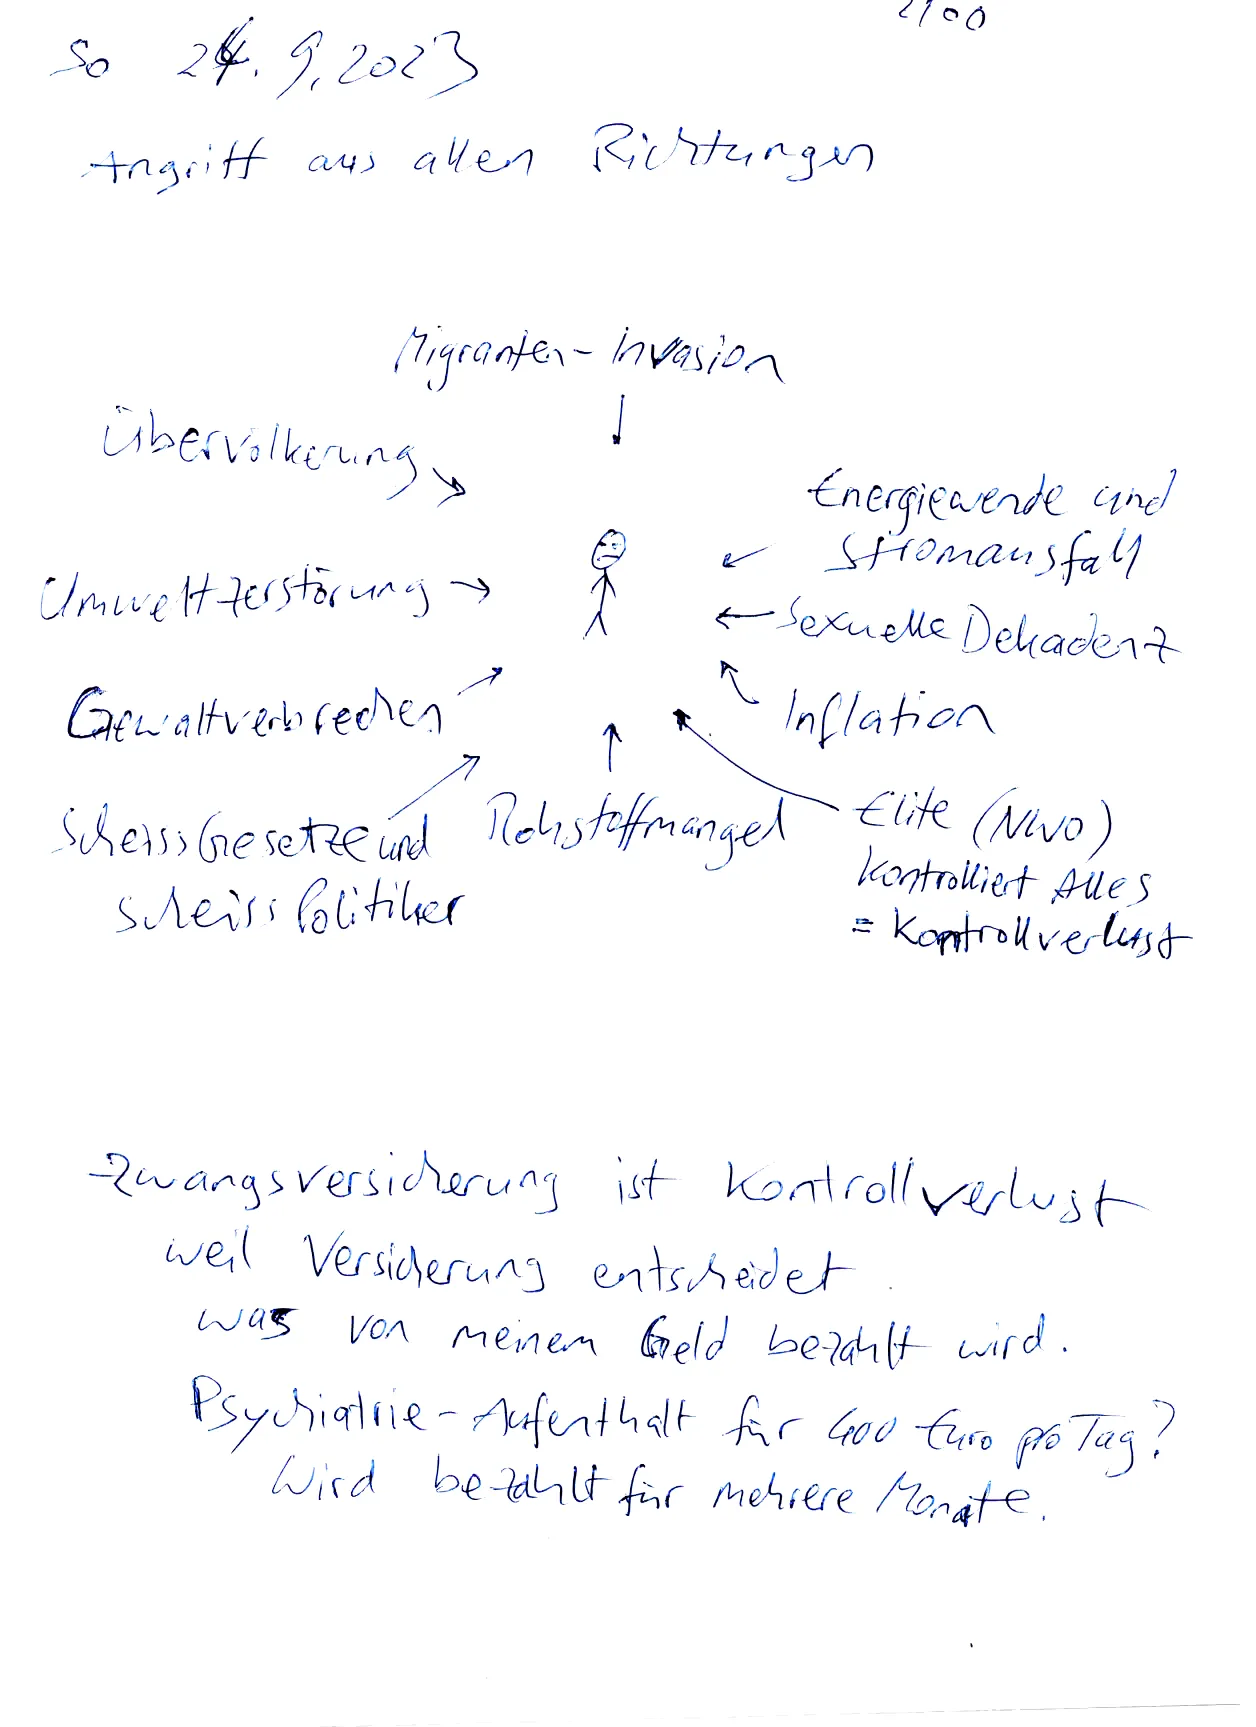 2100
So 24.9.2023
Angriff aus allen Richtungen
Migranten-Invasion
Übervölkerung
Energiewende und
Stromausfall
Umweltzerstörung
Sexuelle Dekadenz
Gewaltverbrechen
Inflation
Scheiss Gesetze und
Scheiss Politiker
Rohstoffmangel
Elite (NWO)
kontrolliert Alles
= Kontrollverlust
Zwangsversicherung ist Kontrollverlust
weil Versicherung entscheidet
was von meinem Geld bezahlt wird.
Psychiatrie-Aufenthalt für 400 Euro pro Tag?
Wird bezahlt für mehrere Monate.